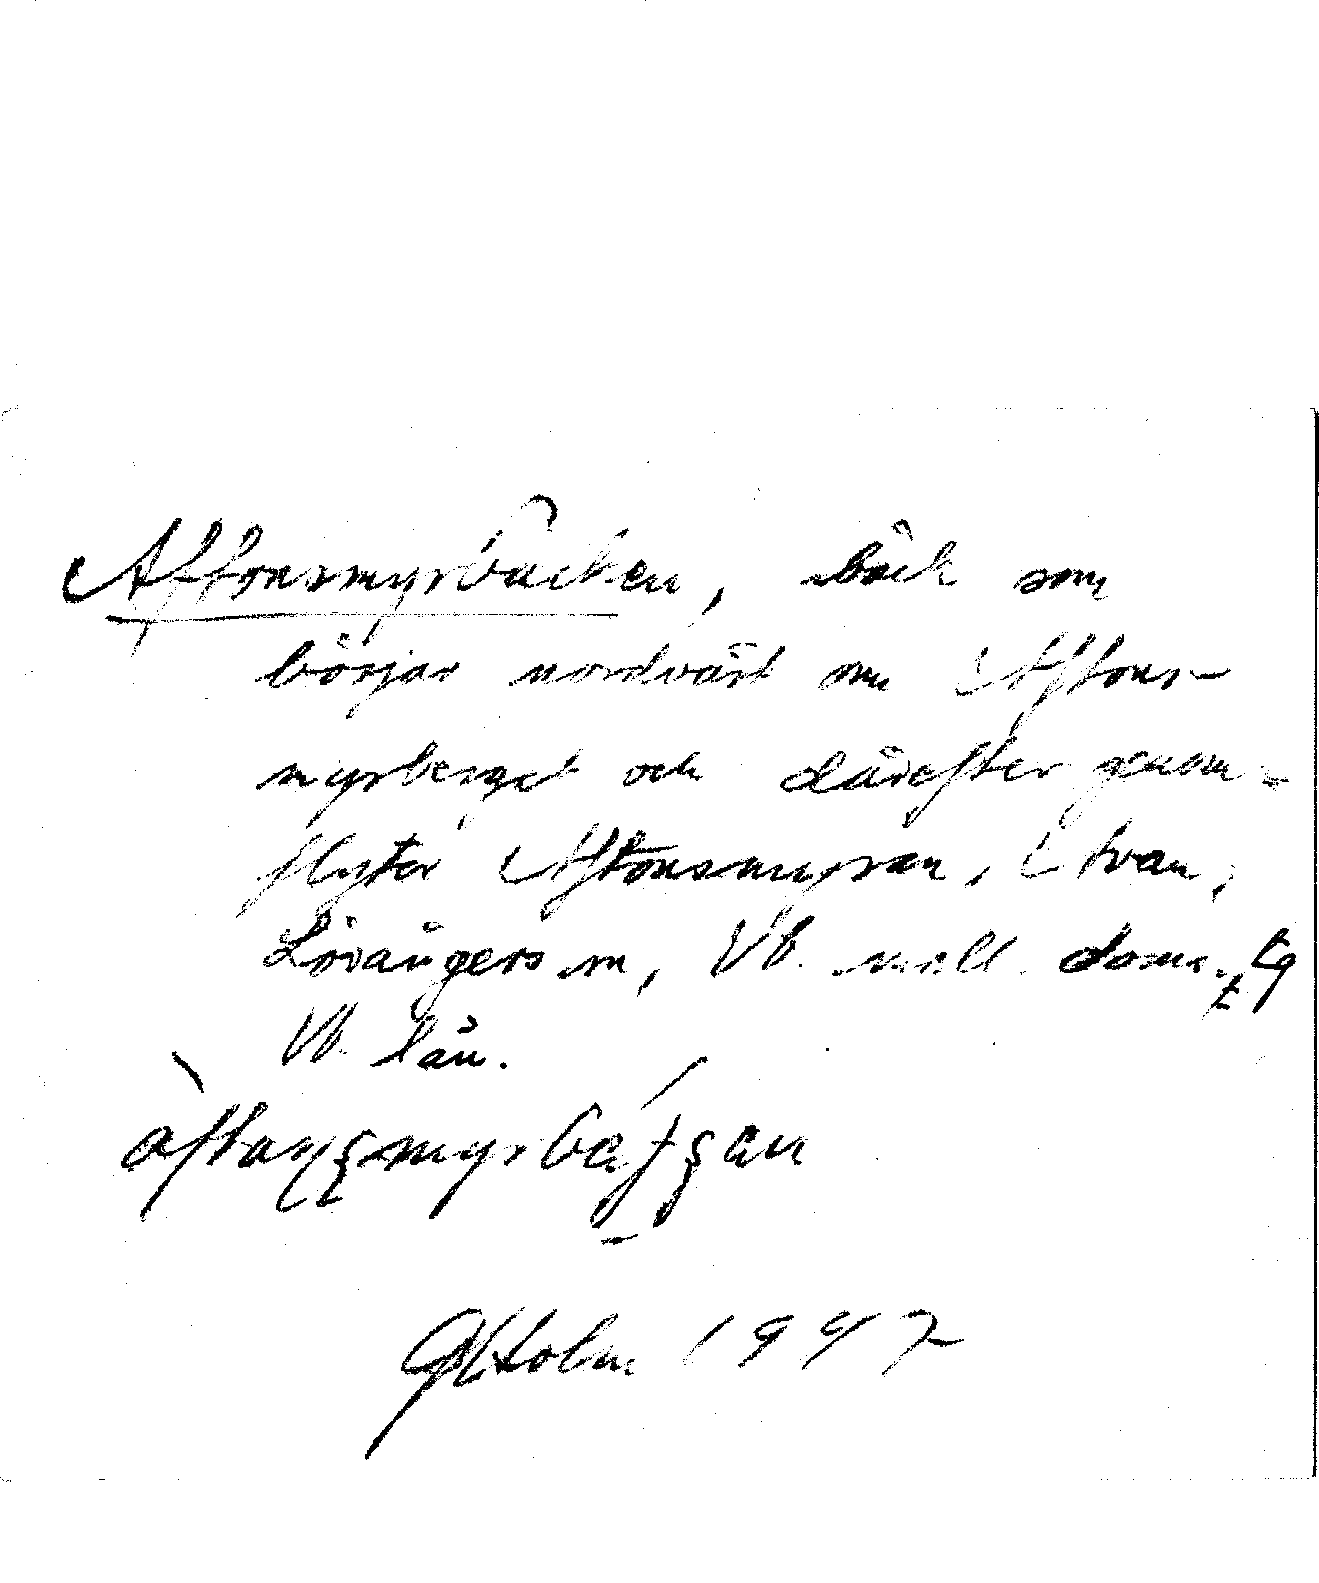 Aftonsmyrbäcken, bäck som
börjar nordväst om Aftons-
myrberget och därefter genom-
flyter Aftonsmyran, i Svan,
Lövångers sn, Vb. mell. doms. tg
Vb. län.
GHolm 1997